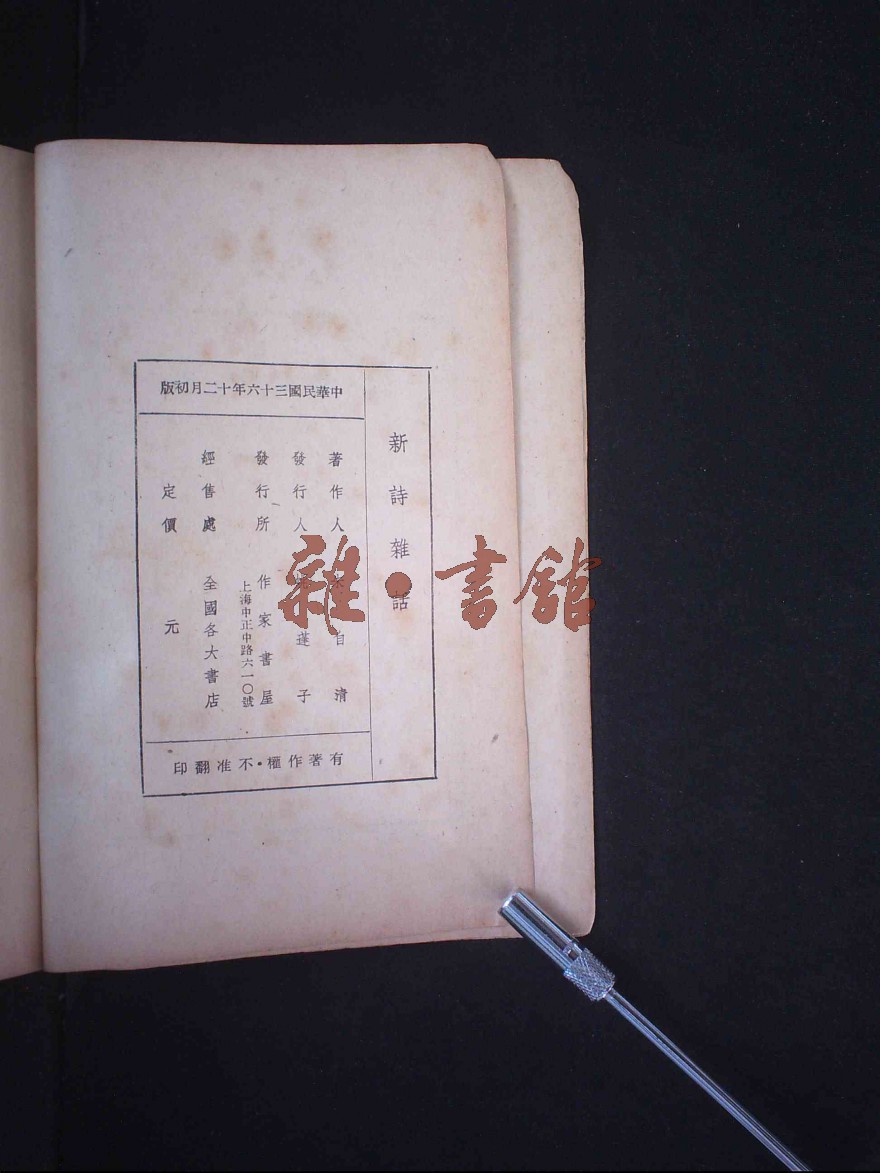 新詩雜話
中華民國三十六年十二月初版
著作人 朱自清
發行人 姚蓬子
發行所 作家書屋
上海中正中路六一〇號
經售處 全國各大書店
定價 元
有著作權•不准翻印
雜•書館